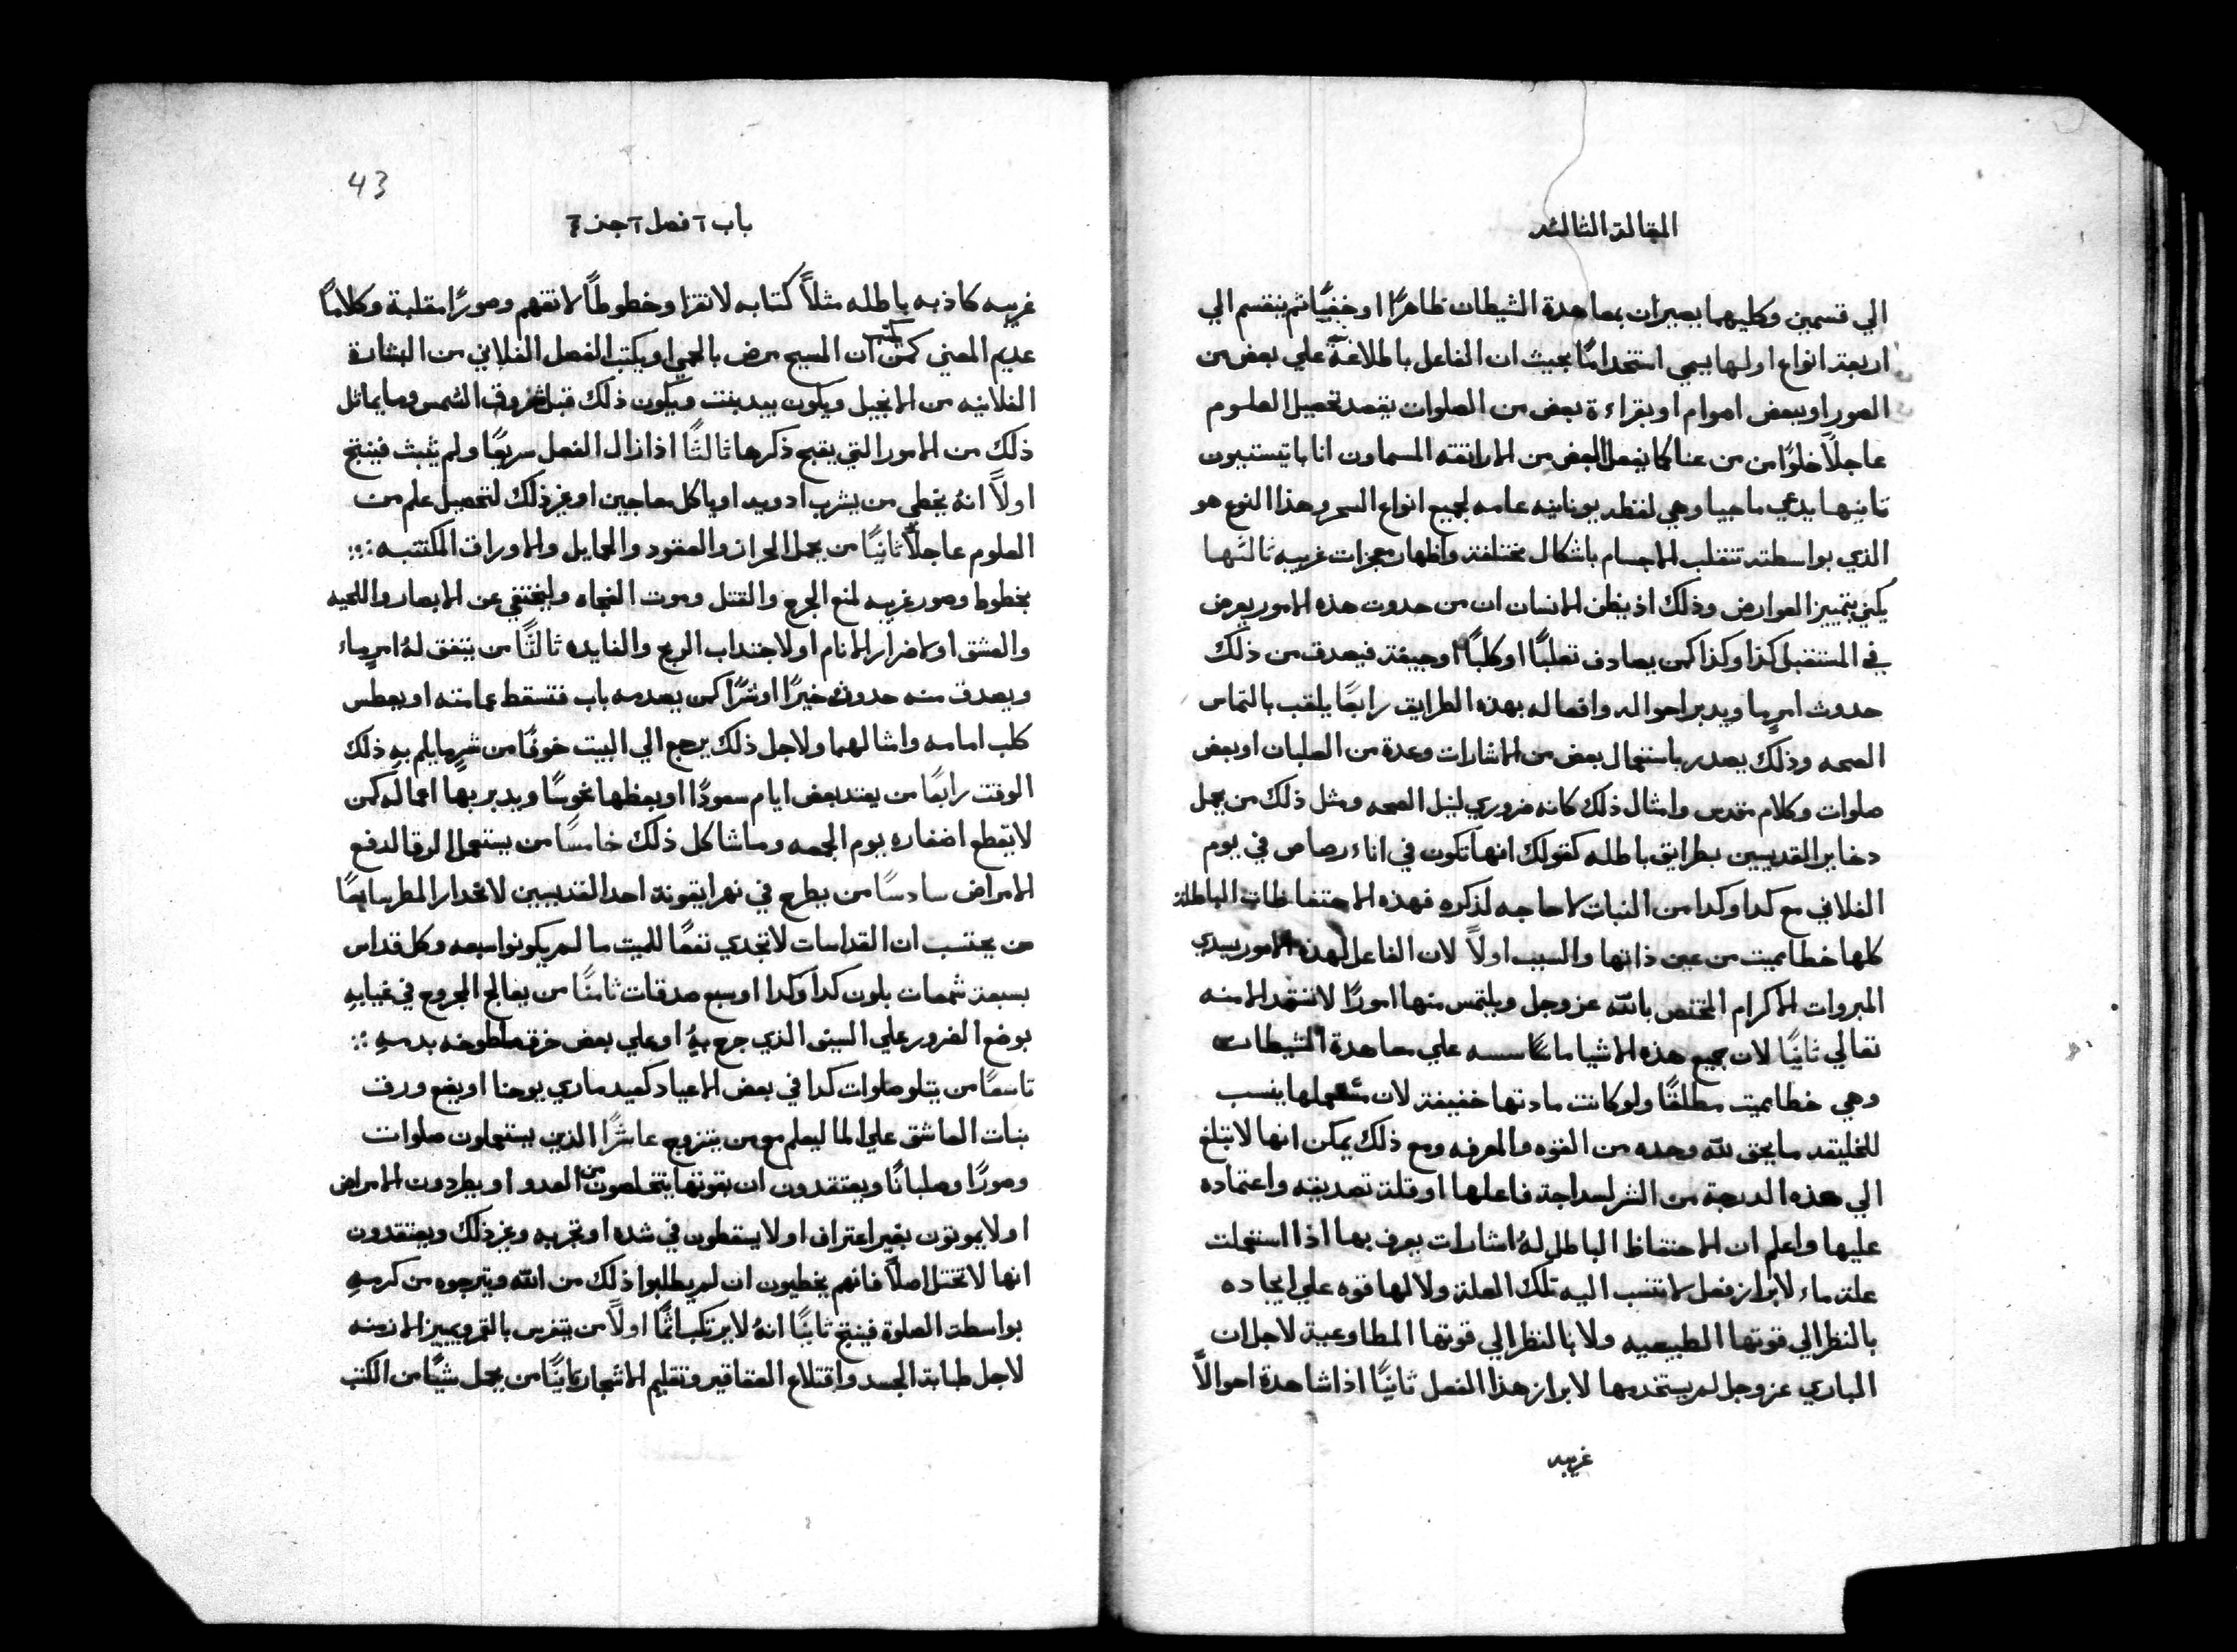 المقالة الثالثه
الي قسمين وكليهما يصيران بمعاهدة الشيطان ظاهرًا اوخفيًا ثم ينقسم الي
اربعة انواع اولها يسمي استخدامًا بحيث ان الفاعل باطلاعة علي بعض من
الصور اوببعض اصوام او بقراءة بعض من الصلوات يقصد تحصيل العلوم
عاجلًا خلوًا من من عنا كما يفعل البعض من الاراتقه المسماون انا باتيستبيون
ثانيها يدعي ماجيا وهي لفظه يونانيه عامه لجميع انواع السحر وهذا النوع هو
الذي بواسطته تنقلب الاجسام باشكال مختلفة واظهار معجزات غريبه ثالثها
يكني بتمييز العوارض وذلك اذ يظن الانسان ان من حدوث هذه الامور يعرض
في المستقبل كذا وكذا كمن يصادف ثعلبًا اوكلبًا اوجيفة فيصدف من ذلك
حدوث امرٍما ويدبر احواله وافعاله بهذه الطرايق رابعًا يلقب بالتماس
الصحه وذلك يصدر باستعمال بعض من الاشارات وعدة من الصلبان اوبعض
صلوات وكلام مقدس وامثال ذلك كانه ضروري لنيل الصحه ومثل ذلك من يحمل
دخاير القديسين بطرايق باطله كقولك انها تكون في اناء رصاص في يوم
الفلاني مع كدا وكدا من النبات لاحاجه لذكره فهذه الاحتفاظات الباطلة
كلها خطا مميت من عين ذاتها والسبب اولًا لان الفاعل لهذه الامور يسدي
المبروات الاكرام المختص بالله عز وجل ويلتمس منها امورًا لاتستمد الا منه
تعالي ثانيًا لان جميع هذه الاشيا ماسسه علي معاهدة الشيطان
وهي خطا مميت مطلقًا ولو كانت مادتها خفيفة لان مستعملها ينسب
للخليقه مايحق لله وحده من القوه والمعرفه ومع ذلك يمكن انها لاتبلغ
الي هذه الدرجة من الشر لسداجة فاعلها اوقلة تصديقه واعتماده
عليها واعلم ان الاحتفاظ الباطل لهُ اشارات يعرف بها اذا استعملت
علة ماء لابراز فعل لاتنسب اليه تلك العلة ولا لها قوه علي ايجاده
بالنظر الي قوتها الطبيعيه ولا بالنظر الي قوتها المطاوعية لاجل ان
الباري عز وجل لم يستخدمها لابراز هذا الفعل ثانيًا اذا شاهدة احوالًا
غريبه
43
باب ٦ فصل ٦ جز ٣
غريبه كاذبه باطله مثلًا كتابه لاتقرا وخطوطًا لاتفهم وصورًا مقلبة وكلامًا
عديم المعني كمن ان المسيح مرض بالحمي او يكتب الفصل الفلاني من البشارة
الفلانيه من الانجيل ويكون بيد بنت ويكون ذلك قبل شروق الشمس وما يماثل
ذلك من الامور التي يقبح ذكرها ثالثًا اذا زال الفعل سريعًا ولم يثبت فينتج
اولًا انهُ يخطي من يشرب ادويه اوياكل معاجين او غير ذلك لتحصيل علم من
العلوم عاجلًا ثانيًا من يحمل الحراز والعقود والحمايل والاوراق المكتتبه
بخطوط وصور غريبه لمنع الجرح والقتل وموت الفجاه وليختفي عن الابصار واللحيه
والعشق اولاضرار الانام اولاجتداب الربح والفايده ثالثًا من يتفق لهُ امرٍماء
ويصدف منه حدوث خيرًا اوشرًا كمن يصدمه باب فتسقط عمامته اويعطس
كلب امامه وامثالهما ولاجل ذلك يرجع الي البيت خوفًا من شرٍ مايلم بهِ ذلك
الوقت رابعًا من يعتد بعض ايام سعودًا او بعظها نحوسًا ويدبر بها اعماله كمن
لايقطع اضفاره يوم الجمعه وماشاكل ذلك خامسًا من يستعمل الرقا لدفع
الامراض سادسًا من يطرح في نهر ايقونة احد القديسين لانحدار المطر سابعًا
من يحتسب ان القداسات لاتجدي نفعًا للميت مالم يكونوا سبعه وكل قداس
بسبعة شمعات بلون كدا وكدا اوسبع صدقات ثامنًا من يعالج الجروح في غيابهِ
بوضع الضرور علي السيف الذي جرح بهِ اوعلي بعض خرق ملطوخه بدمهِ
تاسعًا من يتلو صلوات كدا في بعض الاعياد كعيد ماري يوحنا اويضع ورق
بنات العاشق علي الما ليعلم مع من يتزوج عاشرًا الذين يستعملون صلوات
وصورًا وصلبانًا ويعتقدون ان بقوتها يتخلصون من العدو او يطردون الامراض
اولايموتون بغير اعتراف اولايسقطون في شده اوتجربه وغير ذلك ويعتقدون
انها لاتختل اصلًا فانهم يخطيون ان لم يطلبوا ذلك من الله ويترجوه من كرمهِ
بواسطة الصلوة فينتج ثانيًا انهُ لايرتكب اثمًا اولًا من يتفرس بالقمر ويميز الازمنه
لاجل طبابة الجسد واقتلاع العقاقير وتقليم الاشجار ثانيًا من يحمل شيًا من الكتب